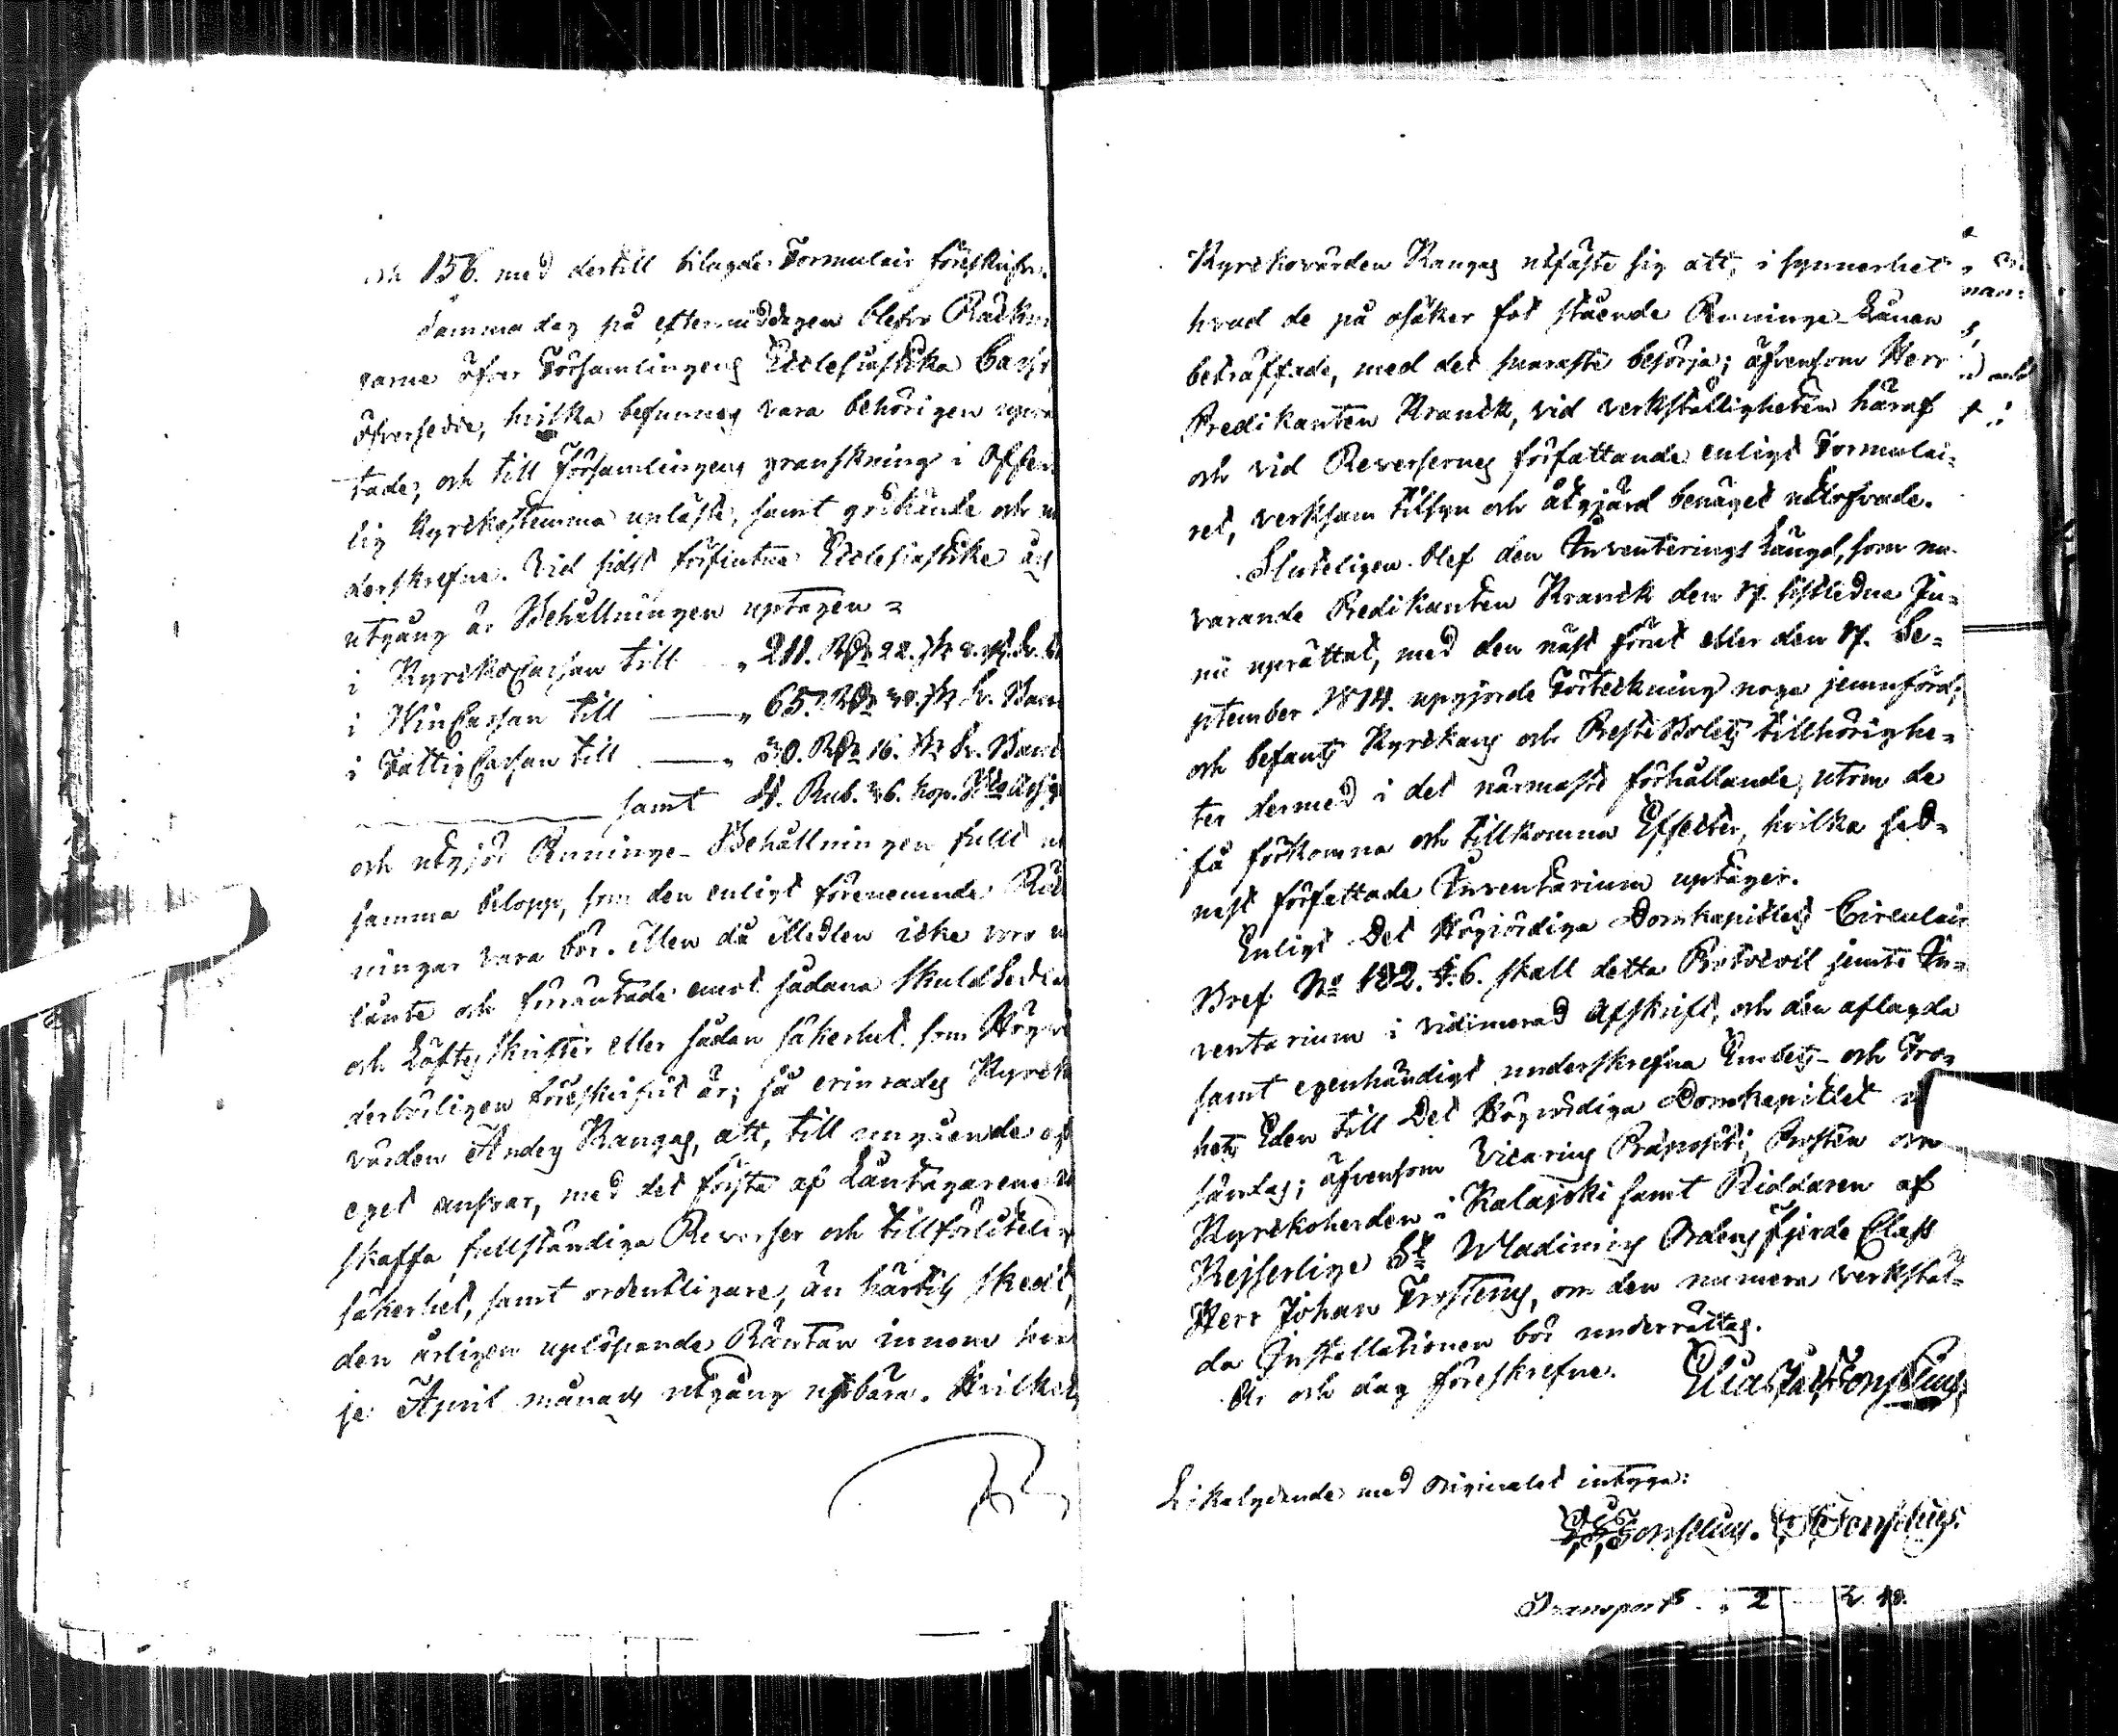 och 156. med dertill bilagde Formulair föreskifva.
Samma dag på eftermiddagen blefvo Räkn
garne öfver Församlingens Ecclesiastika Cass
öfversedde, hvilka befunnos vara behörigen upprä
tade, och till Församlingens granskning i Offen
lig Kyrkostemma upläste, samt godkände och un
derskrefne. Vid sidst förflutna Ecclesiastike års
utgång är Behållningen uptagen
i KyrkoCassan till " 211. Rdr 22. sk 8. rst. Sv. B
i VinCassan till " 65. Rdr 40. sk Sv. Banc
i FattigCassan till " 30. Rdr 16. sk Sv. Banc
samt 4. Rub. 36. kop. Bco Assig
och utgjör Penninge-Behållningen fullt ut
samma belopp, som den enligt förenemnde Räk
ningar vara bör. Men då Medlen icke voro ut
lånte och förräntade emot sådana Skuldsedlar
och Löftesskrifter eller sådan säkerhet, som Högvör
derbörligen föreskrifvit är; så erinrades Kyrko
värden Anders Kangas, att, till undgående af
eget ansvar, med det första af Låntagarene
skaffa fullständiga Reverser och tillförlitelig
säkerhet, samt ordentligare, än härtils skedt,
den årligen uplöpande Räntan innom hvar
je April månads utgång upbära. Hvilkets
Kyrkovärden Kangas utfäste sig att, i synnerhet
hvad de på osäker fot stående Penninge-Lånen
beträffade, med det snaraste besörja; äfvensom Herr
Predikanten Kranck, vid verkställigheten häraf
och vid Reversernes författande enligt Formulai-
ret, verksam tilsyn och åtgjärd benäget utlofvade.
Sluteligen blef den Inventerings Längd, som nu-
varande Predikanten Kranck den 17. sistledne Ju-
nii uprättat, med den näst förut eller den 17. Se-
ptember 1814. upgjorde Förteckning noga jemnförd,
och befants Kyrkans och PrestBolets tillhörighe-
ter dermed i det närmaste förhållande, utom de
få förkomna och tillkomna Effecter, hvilka sed-
nast författade Inventarium uptager.
Enligt Det Högvördiga Domkapitlets Circulair
Bref No 182. §. 6. skall detta Protocoll jemte In-
ventarium i vidimerad afskrift, och den aflagda
samt egenhändigt underskrefna Embets- och Tro-
hets Eden till Det Högvördiga Domkapitlet
sändas; äfvensom Vicarius Præpositi, Prosten och
Kyrkoherden i Kalajoki samt Riddaren af
Kejserlige St Wladimirs Ordens fjerde Class
Herr Johan Frosterus, om den numera verkstäl-
da Installationen bör underrättas.
År och dag föreskrefne.
Likalydende med originalet intyga:
Transport " 2 2. 18.